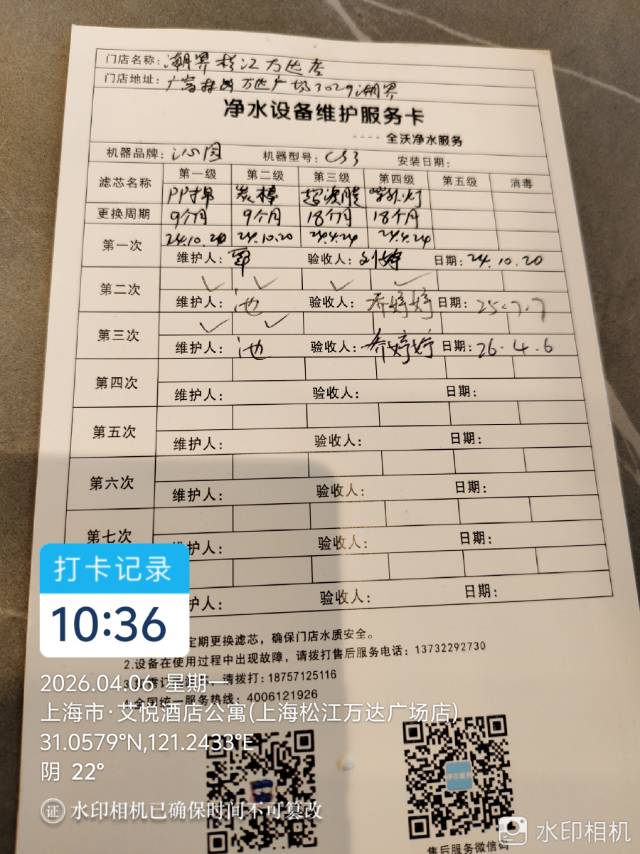 门店名称：潮界松江万达店
门店地址：广富林路万达广场1029潮界
净水设备维护服务卡
---- 全沃净水服务
机器品牌：沁园 机器型号：C53 安装日期：
滤芯名称 第一级 第二级 第三级 第四级 第五级 消毒
PP棉 炭棒 超滤膜 紫外灯
更换周期 9个月 9个月 18个月 18个月
第一次 24.10.20 24.10.20 24.4.24 24.4.24
维护人： 验收人： 日期：24.10.20
第二次 ✓ ✓ ✓ ✓
维护人：池 验收人：乔婷婷 日期：25.7.7
第三次 ✓ ✓
维护人：池 验收人：乔婷婷 日期：26.4.6
第四次
维护人： 验收人： 日期：
第五次
维护人： 验收人： 日期：
第六次
维护人： 验收人： 日期：
第七次
维护人： 验收人： 日期：
护人： 验收人： 日期：
定期更换滤芯，确保门店水质安全。
2.设备在使用过程中出现故障，请拨打售后服务电话：13732292730
请拨打：18757125116
4.全国统一服务热线：4006121926
售后服务微信码
打卡记录
10:36
2026.04.06 星期一
上海市·艾悦酒店公寓(上海松江万达广场店)
31.0579°N,121.2433°E
阴 22°
证 水印相机已确保时间不可篡改
水印相机